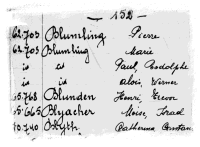 — 152 —
62.703 Blumling Pierre
62.703 Blumling Marie
is is Paul Rodolphe
is is Aloïs, Werner
15.768 Blunden Henri Trevor
55.665 Blyacher Moise, Israd
10.740 Blyth Catherine Constan.